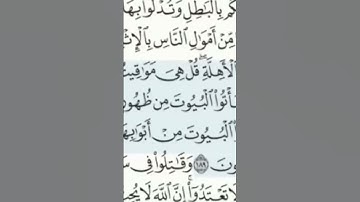 كُم بِٱلْبَٰطِلِ وَتُدْلُوا۟ بِهَا
مِّنْ أَمْوَٰلِ ٱلنَّاسِ بِٱلْإِثْ
ٱلْأَهِلَّةِ ۖ قُلْ هِىَ مَوَٰقِيتُ
تَأْتُوا۟ ٱلْبُيُوتَ مِن ظُهُورِ
ٱلْبُيُوتَ مِنْ أَبْوَٰبِهَا
ونَ ١٨٩ وَقَٰتِلُوا۟ فِى سَ
تَعْتَدُوٓا۟ ۚ إِنَّ ٱللَّهَ لَا يُحِبُّ